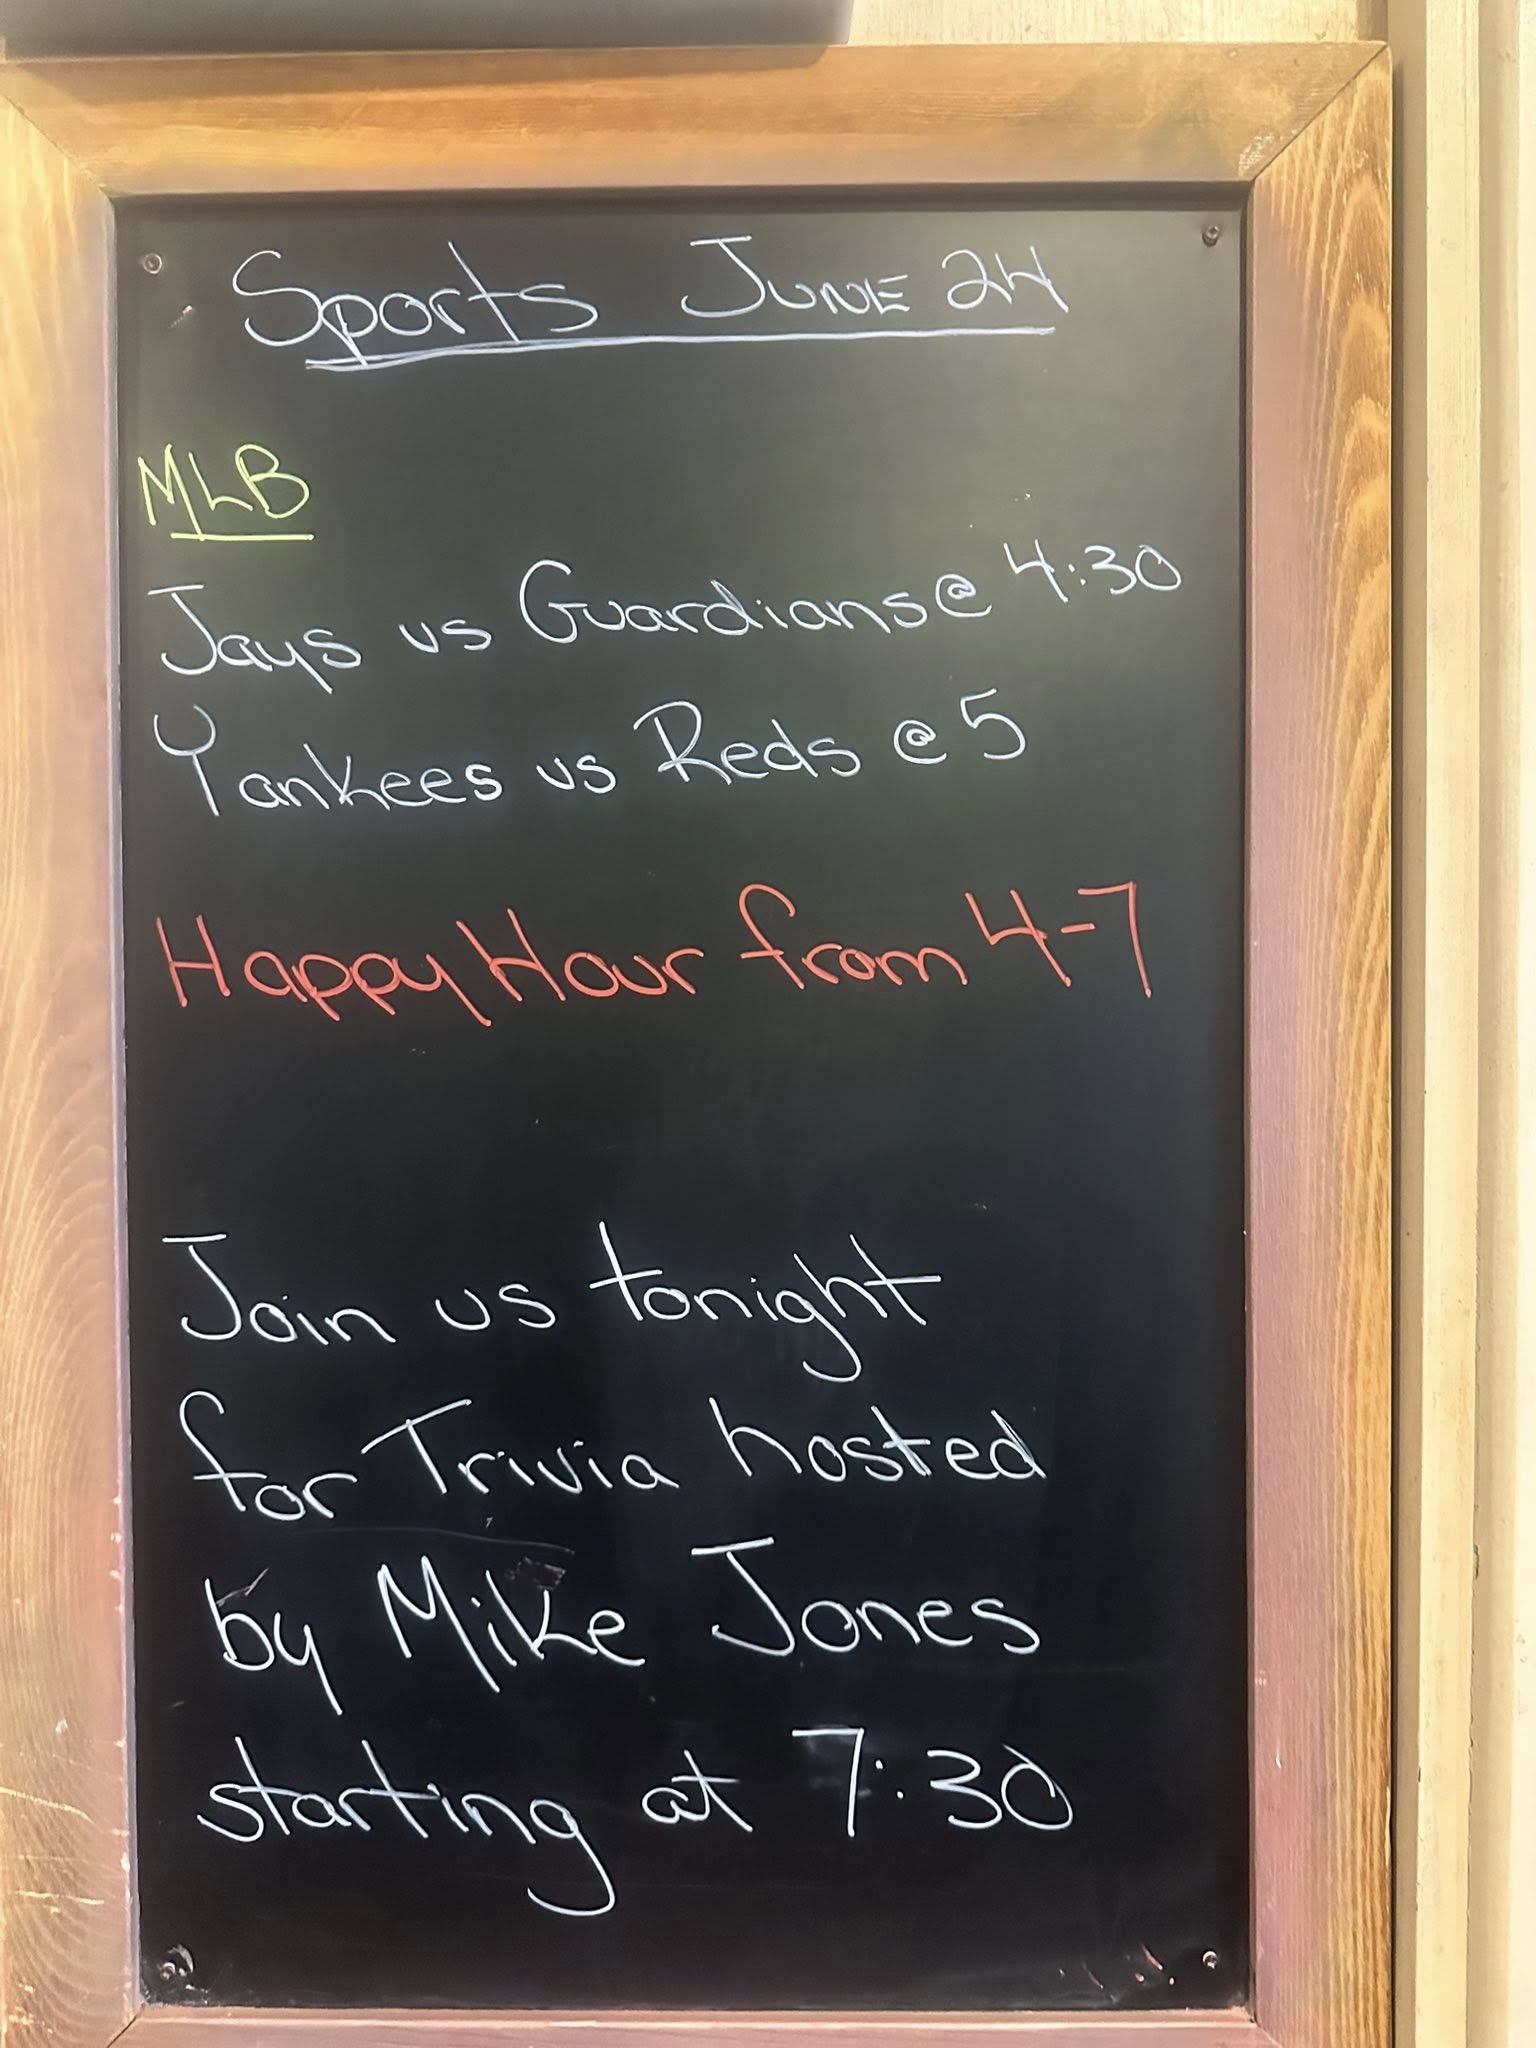 Sports June 24
MLB
Jays vs Guardians @ 4:30
Yankees vs Reds @ 5
Happy Hour from 4-7
Join us tonight
for Trivia hosted
by Mike Jones
starting at 7:30